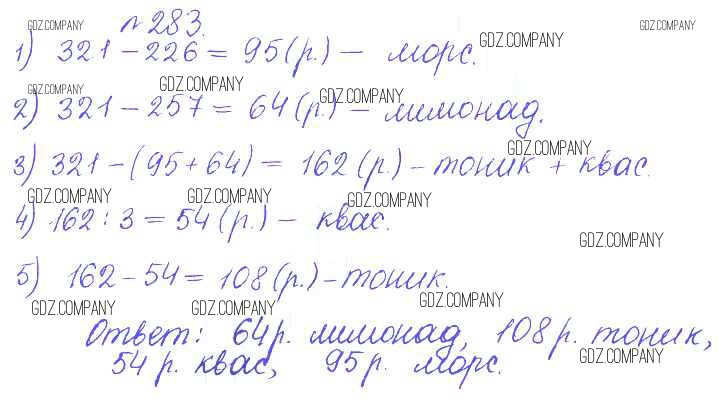 GDZ.COMPANY № 283. GDZ.COMPANY
1) 321 - 226 = 95 (р.) - морс. GDZ.COMPANY
GDZ.COMPANY GDZ.COMPANY GDZ.COMPANY
2) 321 - 257 = 64 (р.) - лимонад.
GDZ.COMPANY
3) 321 - (95 + 64) = 162 (р.) - тоник + квас.
GDZ.COMPANY GDZ.COMPANY GDZ.COMPANY
4) 162 : 3 = 54 (р.) - квас.
GDZ.COMPANY
5) 162 - 54 = 108 (р.) - тоник.
GDZ.COMPANY GDZ.COMPANY GDZ.COMPANY
Ответ: 64 р. лимонад, 108 р. тоник,
54 р. квас, 95 р. морс. GDZ.COMPANY